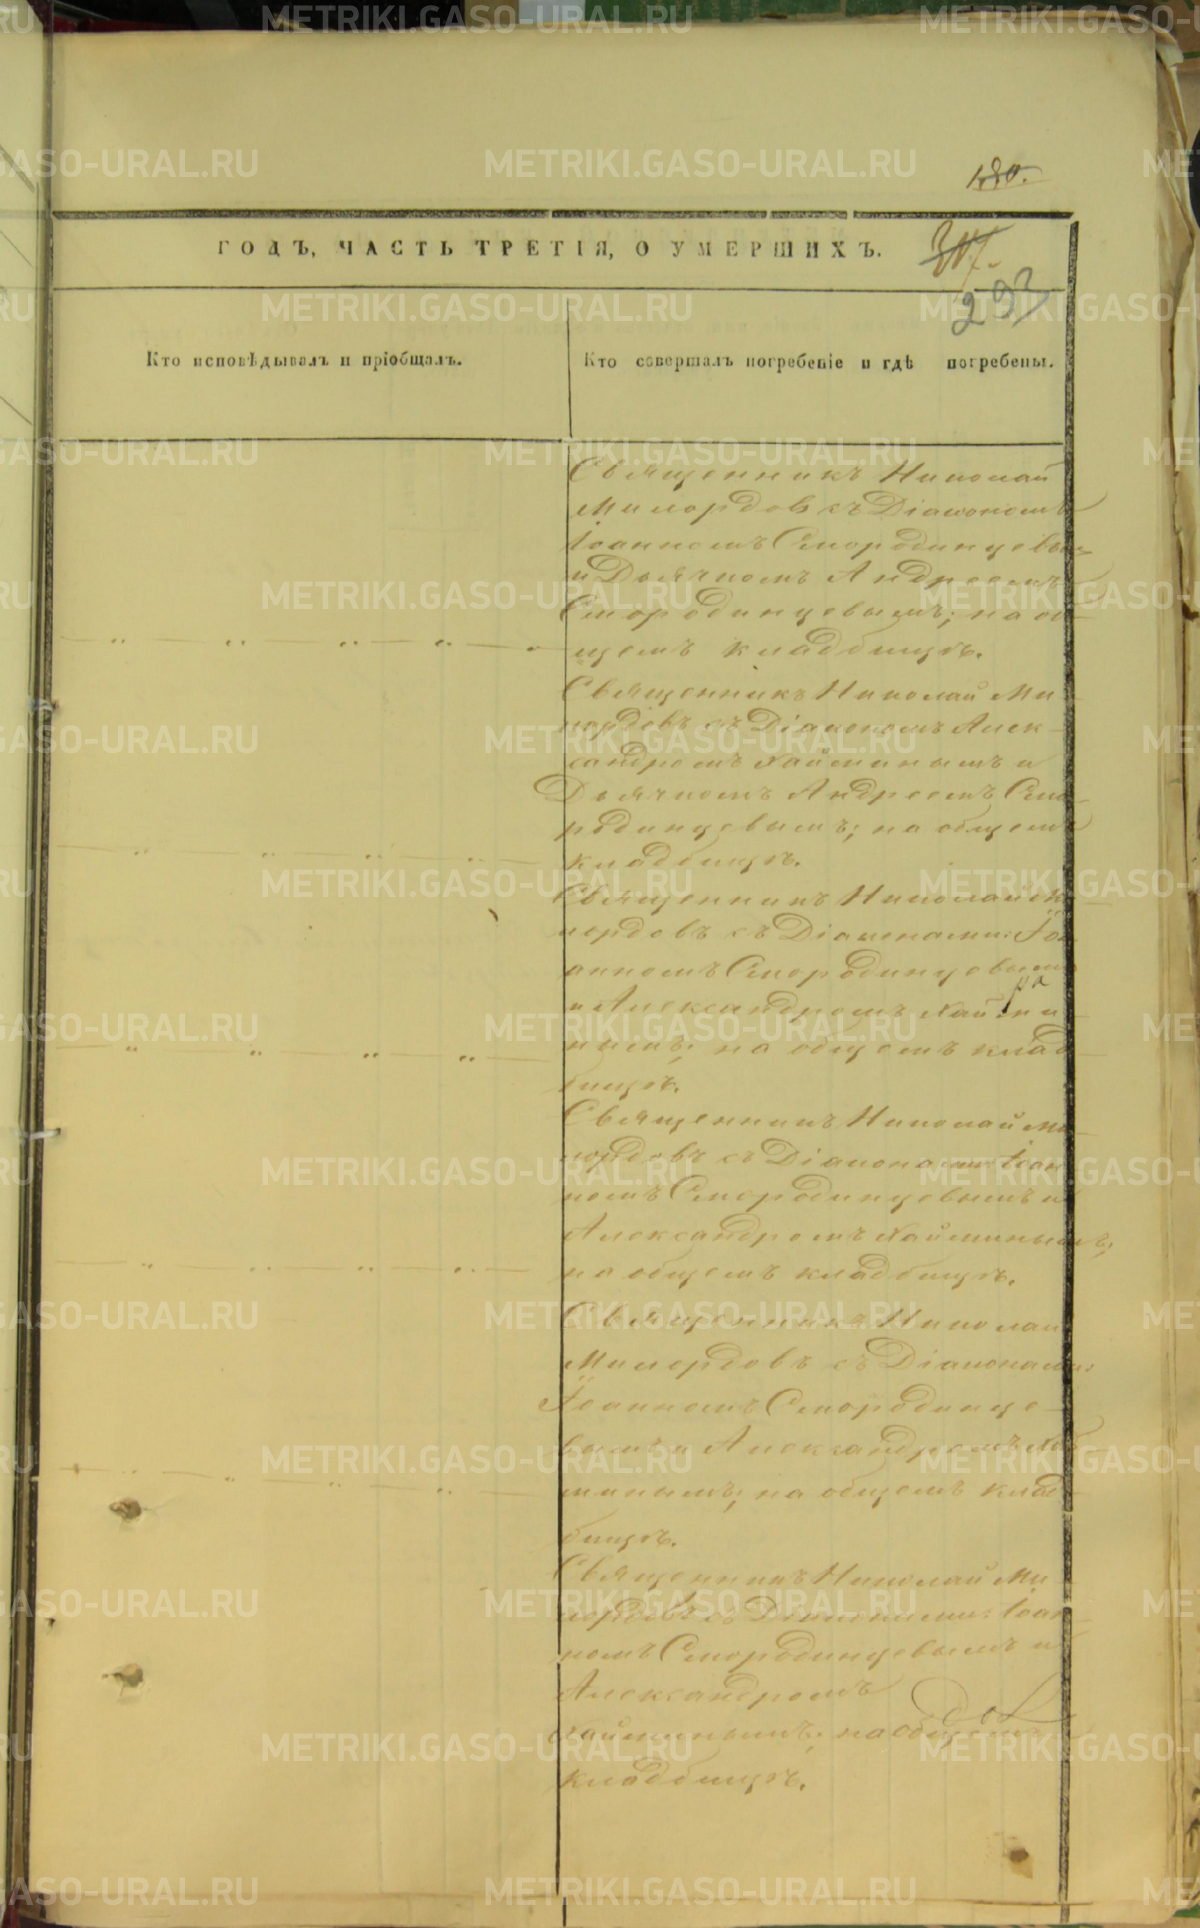 180.
317.
ГОДЪ, ЧАСТЬ ТРЕТІЯ, О УМЕРШИХЪ.
293
Кто исповѣдывалъ и пріобщалъ.
Кто совершалъ погребеніе и гдѣ погребены.
Священникъ Николай
Милордовъ съ Діакономъ
Іоанномъ Смородинцевы=
и Дьячкомъ Андреемъ
Смородинцевымъ; на об
щемъ кладбищѣ.
Священникъ Николай Ми
лордовъ съ Діакономъ Алек
сандромъ Хайминымъ и
Дьячкомъ Андреемъ Смо
родинцевымъ; на общемъ
кладбищѣ.
Священникъ Николай Ми
лордовъ съ Діаконами: Іо
анномъ Смородинцевымъ
и Александромъ Хайми
нымъ; на общемъ клад
бищѣ.
Священникъ Николай Ми
лордовъ съ Діаконами: Іоан
номъ Смородинцевымъ и
Александромъ Хайминымъ;
на общемъ кладбищѣ.
Священникъ Николай
Милордовъ съ Діаконами:
Іоанномъ Смородинце
вымъ и Александромъ Хай
минымъ; на общемъ клад
бищѣ.
Священникъ Николай Ми
лордовъ съ Діаконами: Іоан
номъ Смородинцевымъ и
Александромъ
Хайминымъ; на общемъ
кладбищѣ.
METRIKI.GASO-URAL.RU